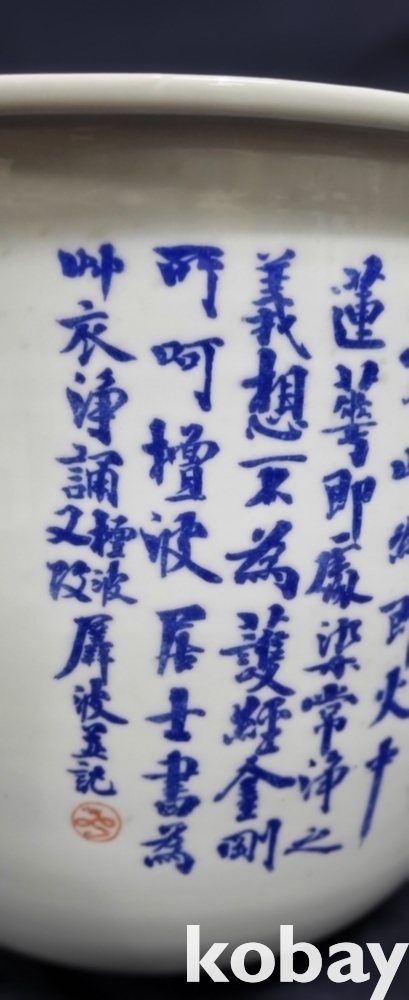 即火中
蓮華即處染常淨之
義想不為護經金剛
所呵檀波居士書為
艸衣淨誦檀波又改
犀波並記
kobay